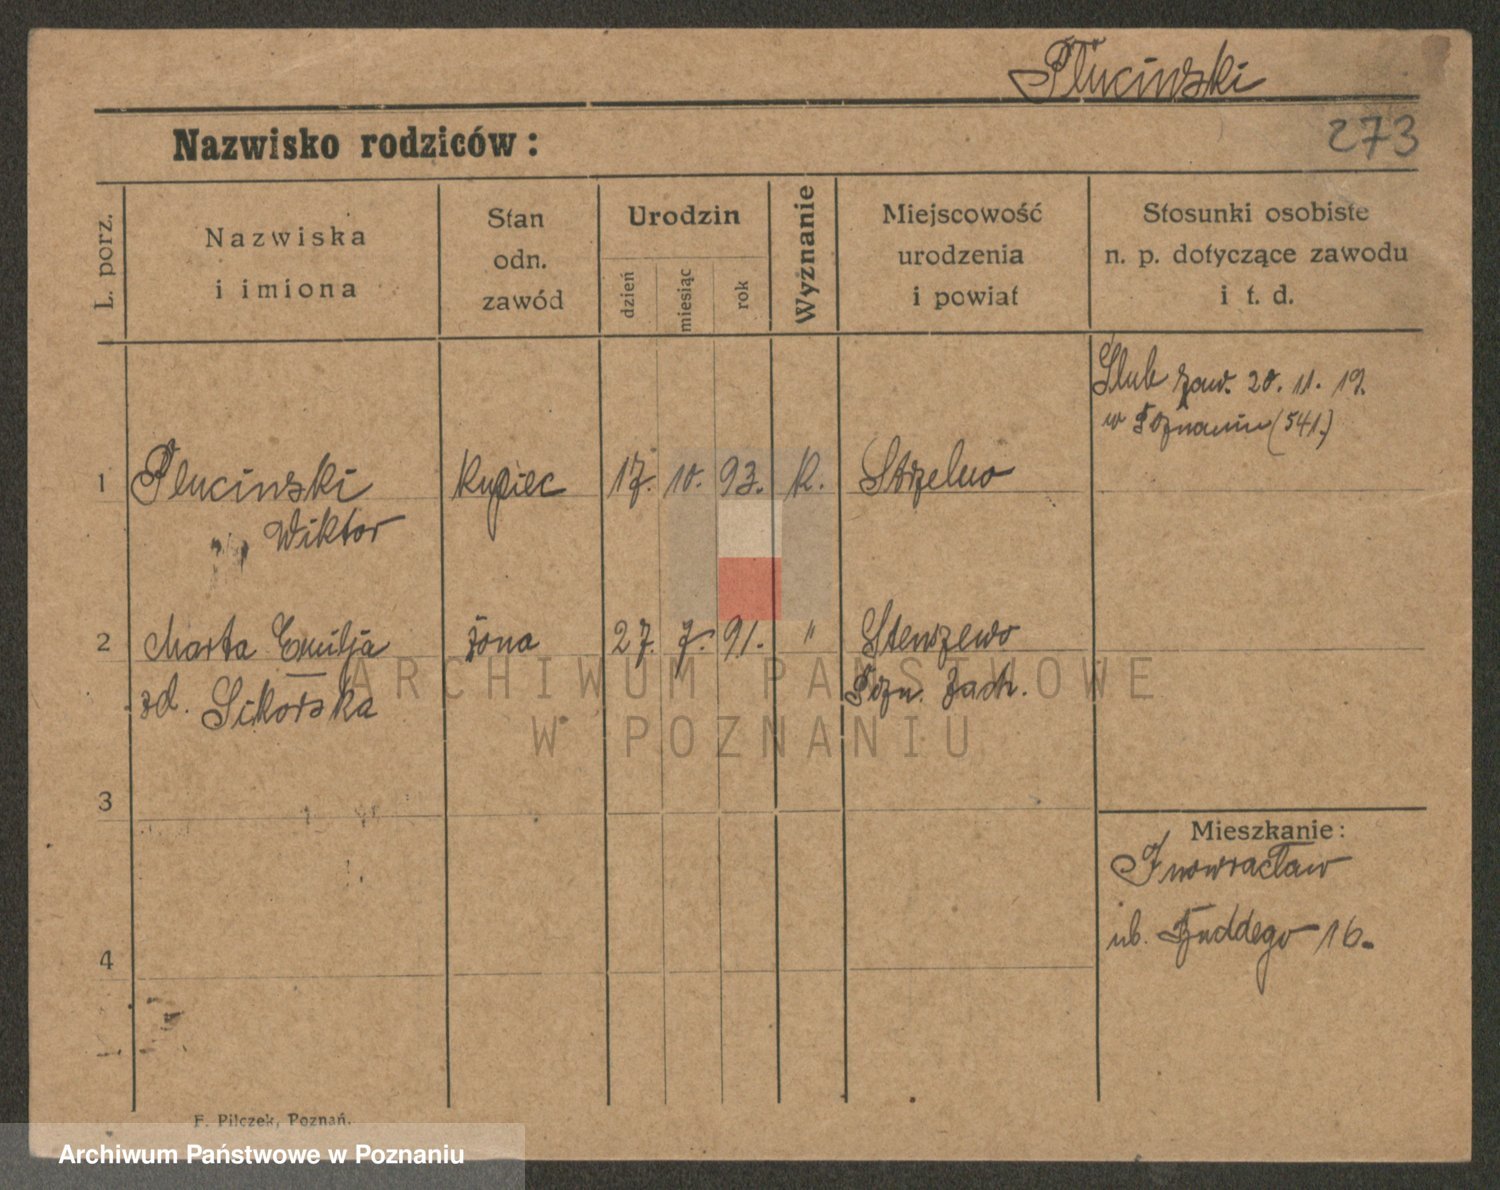 Plucinski
Nazwisko rodziców:
273
L. porz.
Nazwiska
i imiona
Stan
odn.
zawód
Urodzin
dzień
miesiąc
rok
Wyznanie
Miejscowość
urodzenia
i powiat
Stosunki osobiste
n. p. dotyczące zawodu
i t. d.
Ślub zaw. 20. 11. 19.
w Poznaniu (541.)
1 Plucinski Kupiec 17. 10. 93. K. Strzelno
Wiktor
2 Marta Emilja żona 27. 7. 91. " Stenszewo
zd. Sikorska Pozn. Zach.
ARCHIWUM PAŃSTWOWE
W POZNANIU
3
Mieszkanie:
Inowracław
ul. 16.
4
F. Pilczek, Poznań.
Archiwum Państwowe w Poznaniu